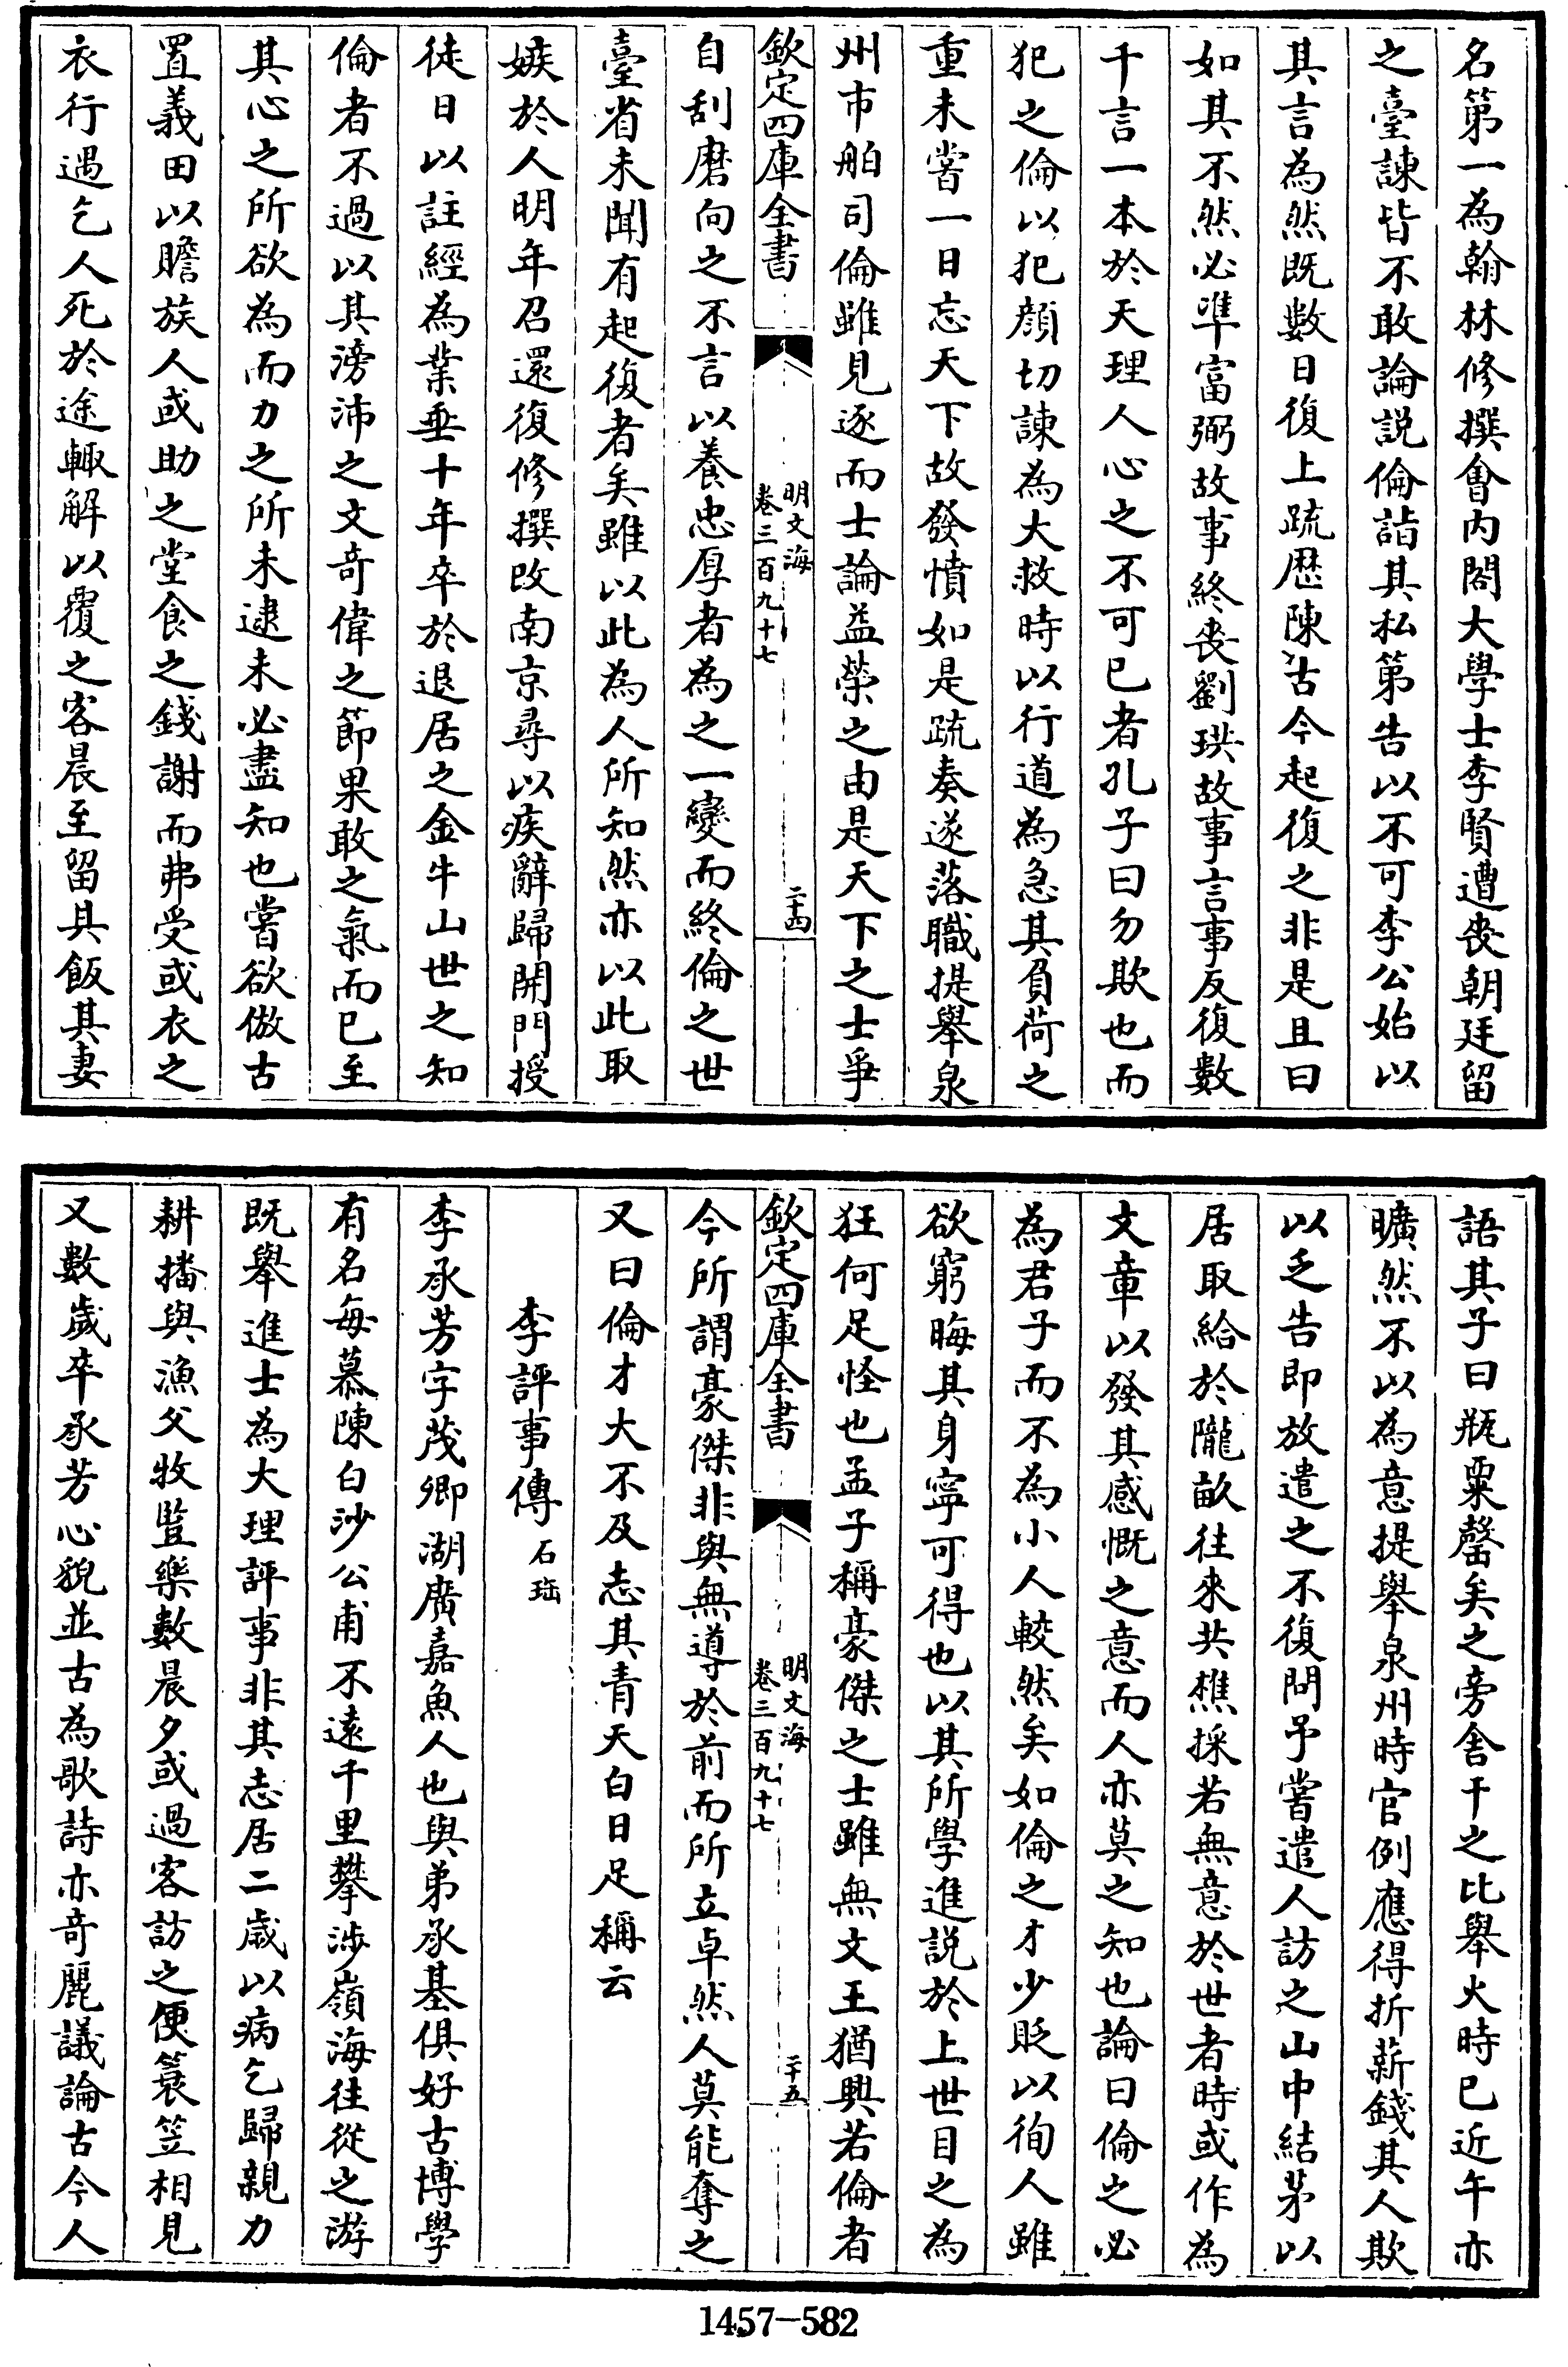 名第一為翰林修撰會内閣大學士李賢遭喪朝廷留
之臺諫皆不敢論説倫詣其私第告以不可李公始以
其言為然既數日復上疏歴陳古今起復之非是且曰
如其不然必凖富弼故事終喪劉珙故事言事反復數
千言一本於天理人心之不可已者孔子曰勿欺也而
犯之倫以犯顔切諫為大救時以行道為急其負荷之
重未嘗一日忘天下故發憤如是疏奏遂落職提舉泉
州市舶司倫雖見逐而士論益榮之由是天下之士爭
欽定四庫全書
明文海
卷三百九十七
二十四
自刮磨向之不言以養忠厚者為之一變而終倫之世
臺省未聞有起復者矣雖以此為人所知然亦以此取
嫉於人明年召還復修撰改南京尋以疾辭歸開門授
徒日以註經為業垂十年卒於退居之金牛山世之知
倫者不過以其滂沛之文奇偉之節果敢之氣而已至
其心之所欲為而力之所未逮未必盡知也嘗欲倣古
置義田以贍族人或助之堂食之錢謝而弗受或衣之
衣行遇乞人死於途輙解以覆之客晨至留具飯其妻
語其子曰瓶粟罄矣之旁舍干之比舉火時已近午亦
曠然不以為意提舉泉州時官例應得折薪錢其人欺
以乏告即放遣之不復問予嘗遣人訪之山中結茅以
居取給於隴畝往來共樵採若無意於世者時或作為
文章以發其感慨之意而人亦莫之知也論曰倫之必
為君子而不為小人較然矣如倫之才少貶以徇人雖
欲窮晦其身寧可得也以其所學進説於上世目之為
狂何足怪也孟子稱豪傑之士雖無文王猶興若倫者
欽定四庫全書
明文海
卷三百九十七
二十五
今所謂豪傑非與無導於前而所立卓然人莫能奪之
又曰倫才大不及志其青天白日足稱云
李評事傳 石珤
李承芳字茂卿湖廣嘉魚人也與弟承基俱好古博學
有名每慕陳白沙公甫不遠千里攀涉嶺海往從之游
既舉進士為大理評事非其志居二歳以病乞歸親力
耕播與漁父牧豎樂數晨夕或過客訪之便簑笠相見
又數歲卒承芳心貌並古為歌詩亦竒麗議論古今人
1457-582